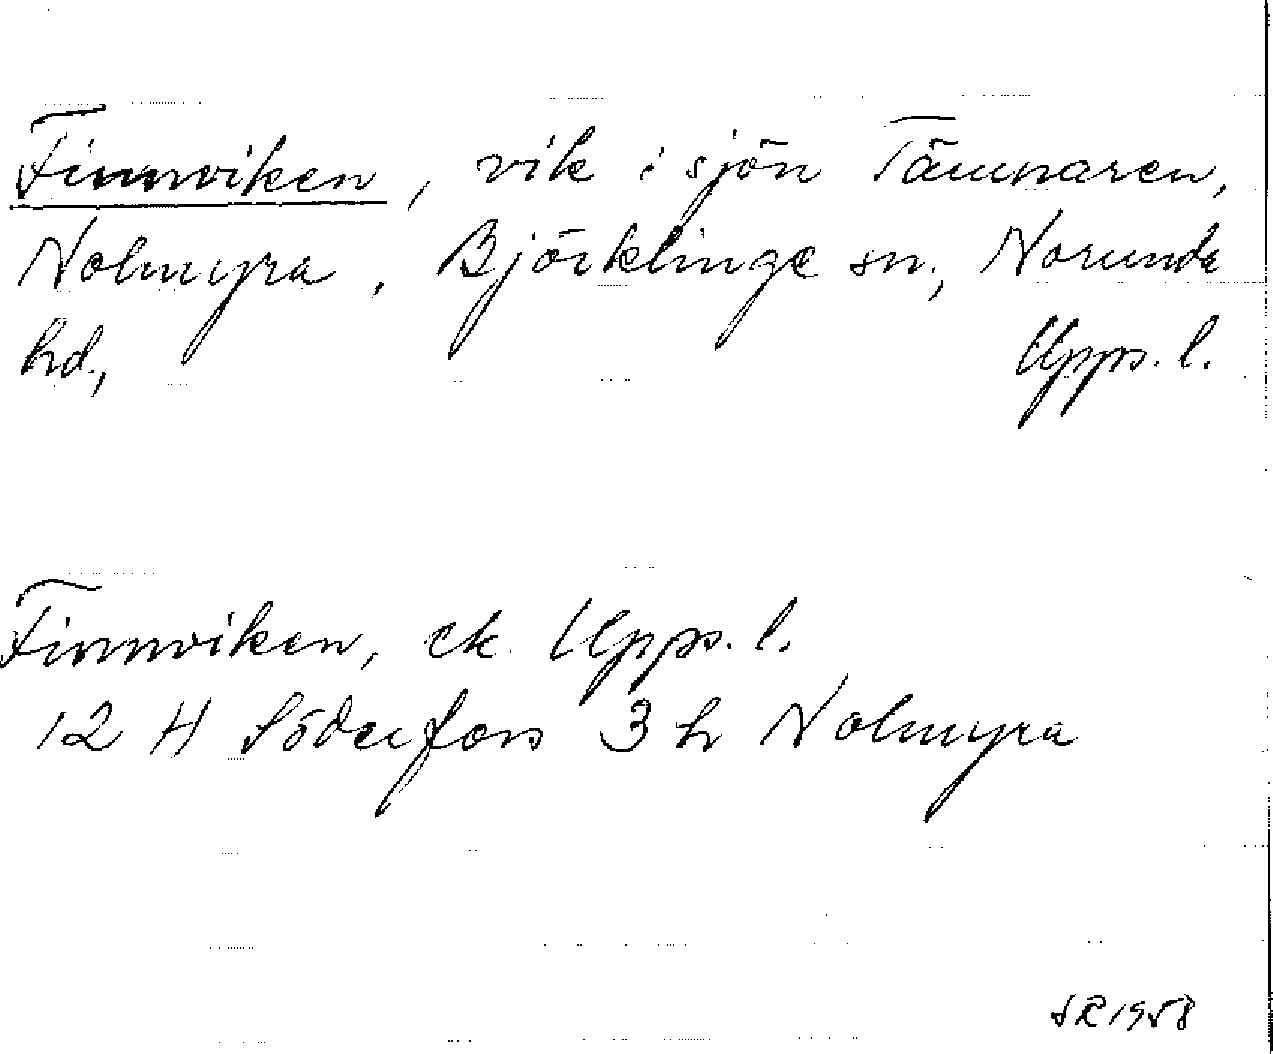 Finnviken, vik i sjön Tämnaren,
Nolmyra, Björklinge sn., Norunda
hd., Upps. l.
Finnviken, ek. Upps. l.
12 H Söderfors 3 h Nolmyra
SR 1958